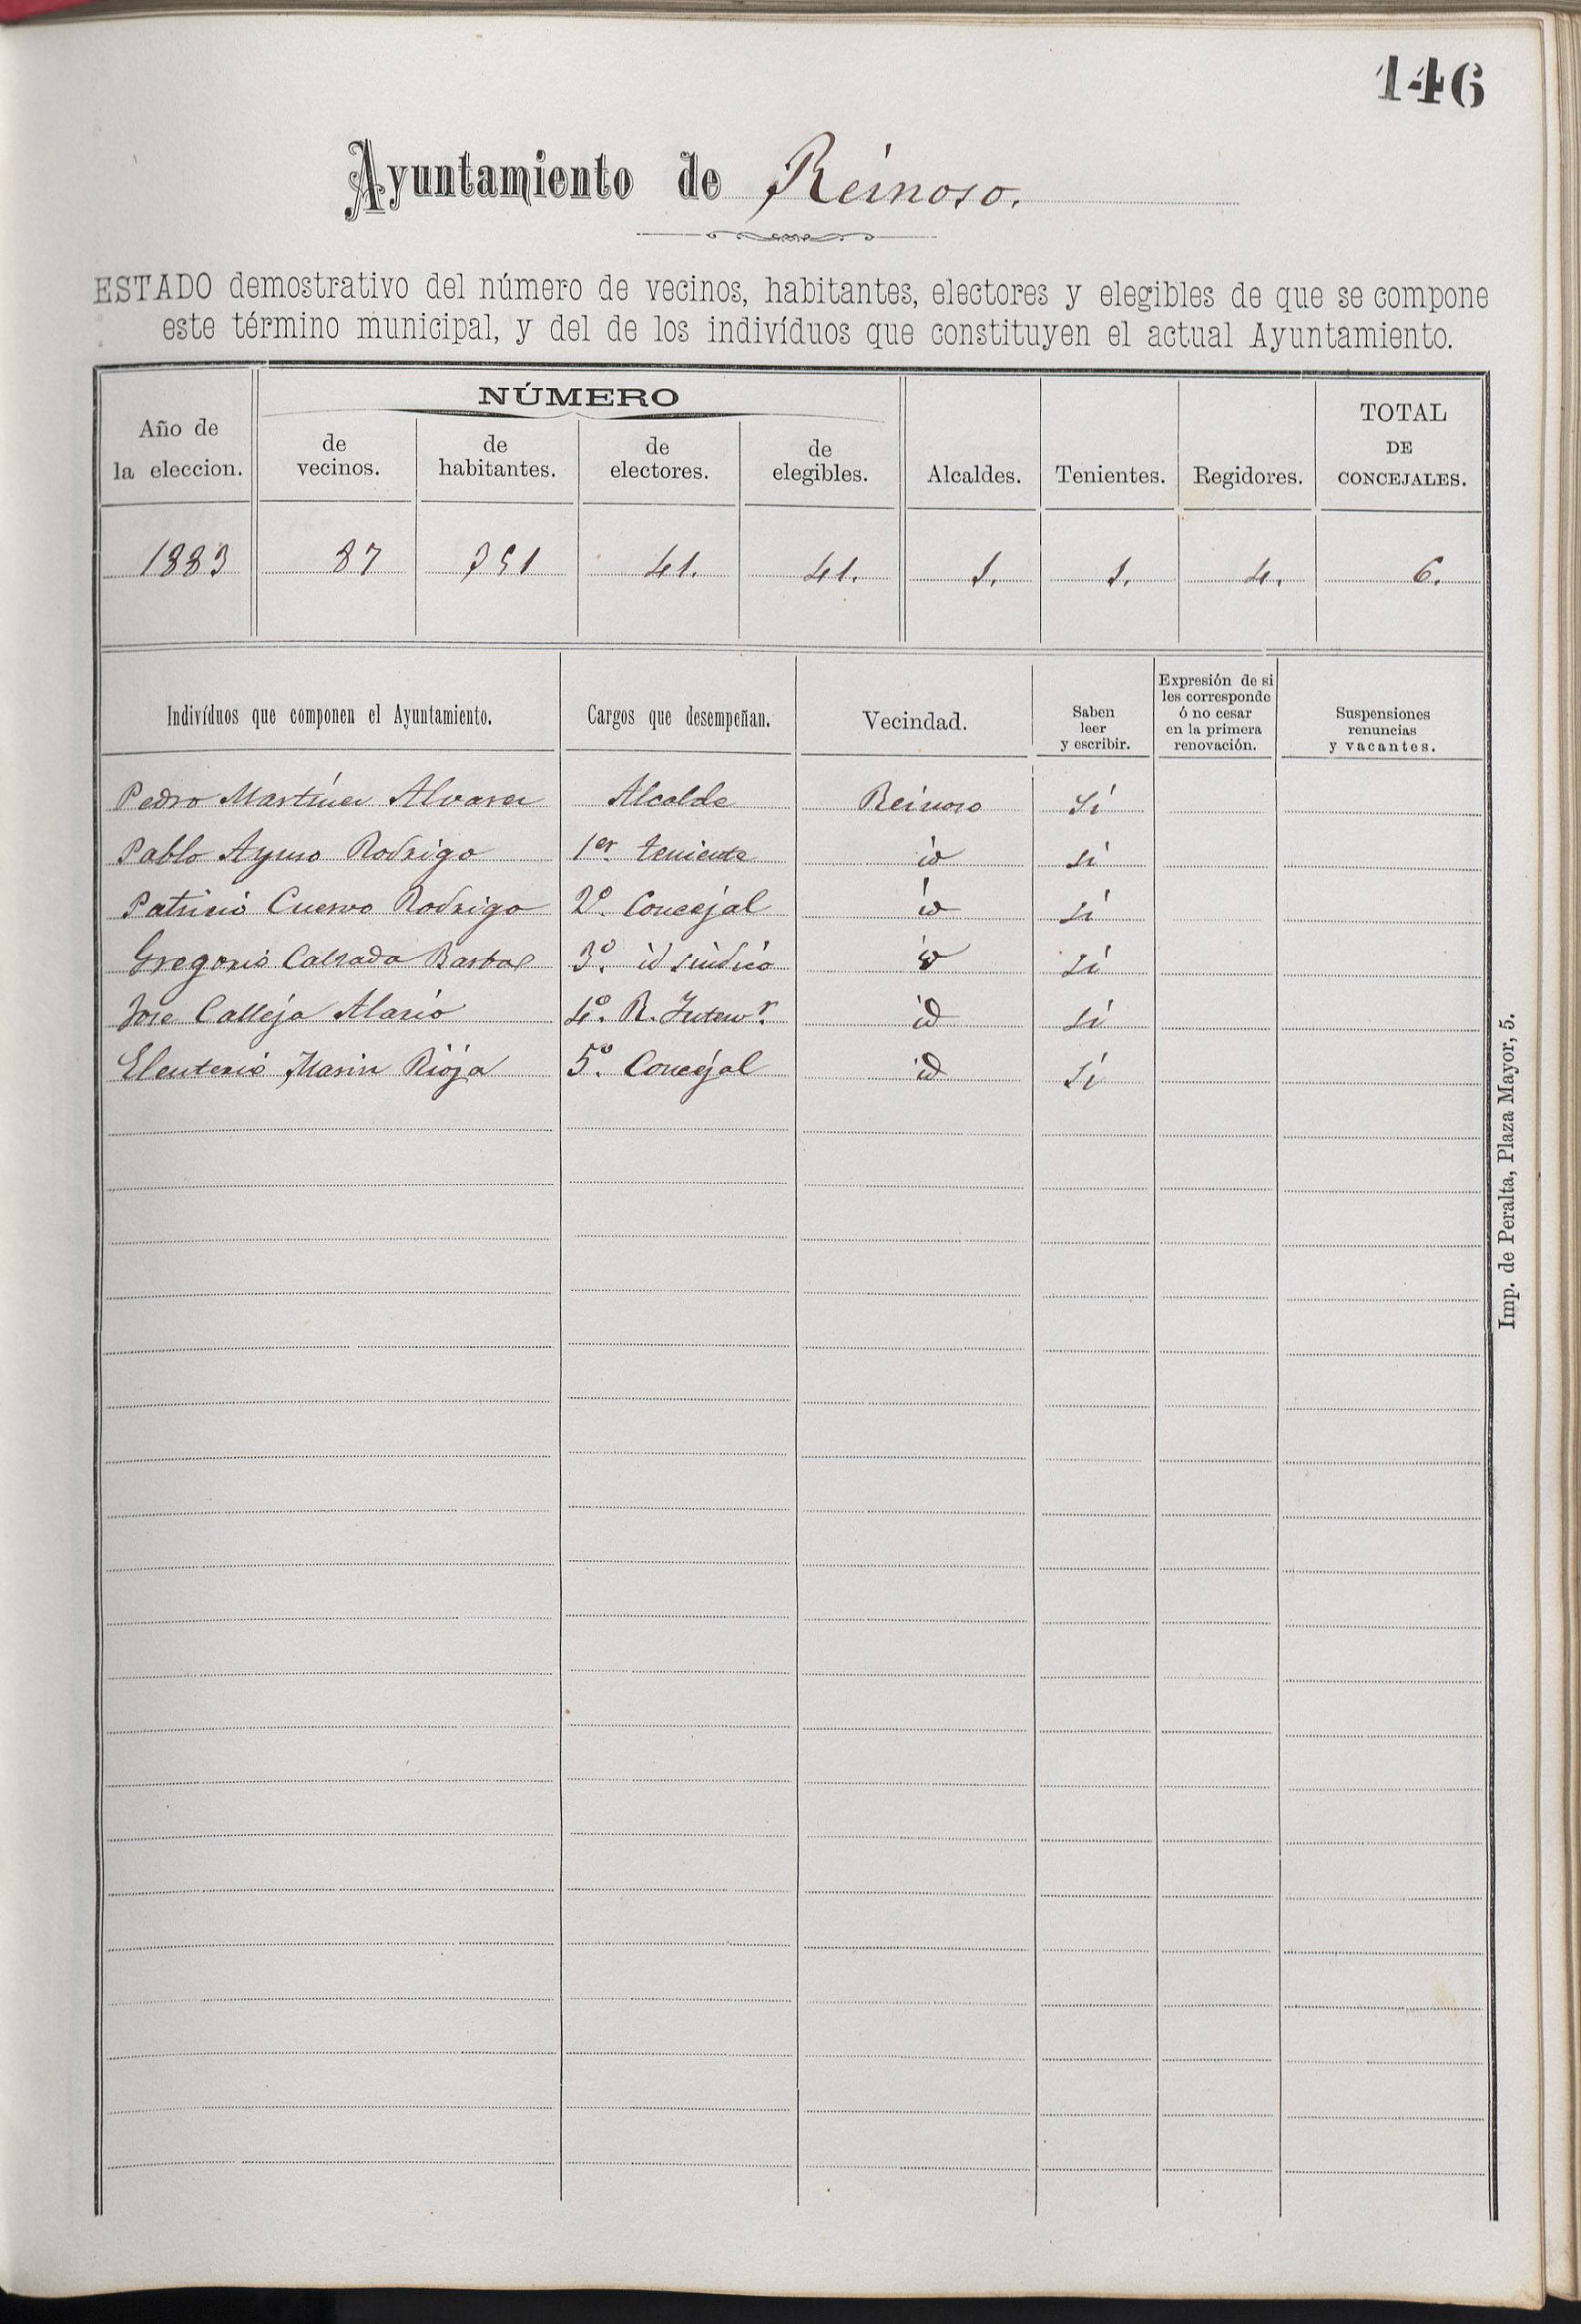 146
Ayuntamiento de Reinoso.
ESTADO demostrativo del número de vecinos, habitantes, electores y elegibles de que se compone
este término municipal, y del de los indivíduos que constituyen el actual Ayuntamiento.
Año de la eleccion. NÚMERO de vecinos. de habitantes. de electores. de elegibles. Alcaldes. Tenientes. Regidores. TOTAL DE CONCEJALES.
1883 87 351 41. 41. 1. 1. 4. 6.
Indivíduos que componen el Ayuntamiento. Cargos que desempeñan. Vecindad. Saben leer y escribir. Expresión de si les corresponde ó no cesar en la primera renovación. Suspensiones renuncias y vacantes.
Pedro Martínez Alvarez Alcalde Reinoso Sí
Pablo Ayuso Rodrigo 1er teniente id sí
Patricio Cuervo Rodrigo 2º. Concejal id sí
Gregorio Calzada 3º. id síndico id sí
Jose Calleja Alario 4º. R. Interv.r id sí
Eleuterio Marin Rioja 5º. Concejal id Sí
Imp. de Peralta, Plaza Mayor, 5.